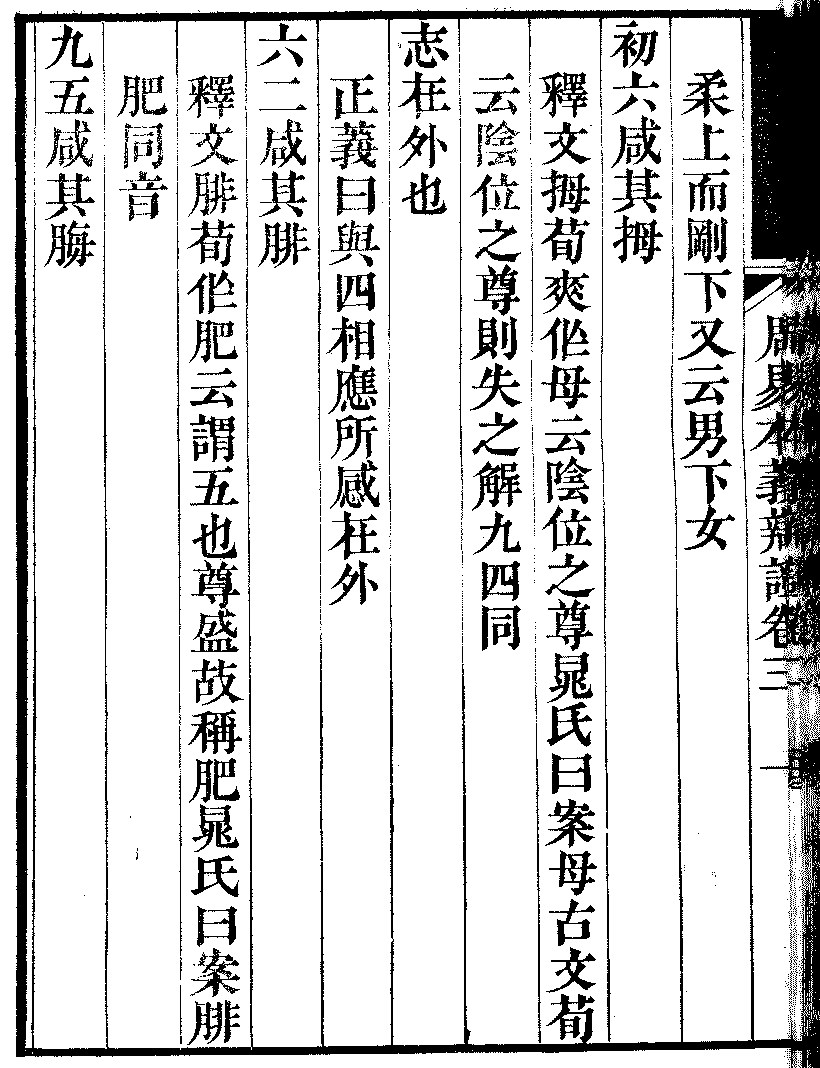 周易本義辨證卷三
柔上而剛下又云男下女
初六咸其拇
釋文拇荀爽作母云陰位之尊晁氏曰案母古文荀
云陰位之尊則失之解九四同
志在外也
正義曰與四相應所感在外
六二咸其腓
釋文腓荀作肥云謂五也尊盛故稱肥晁氏曰案腓
肥同音
九五咸其脢